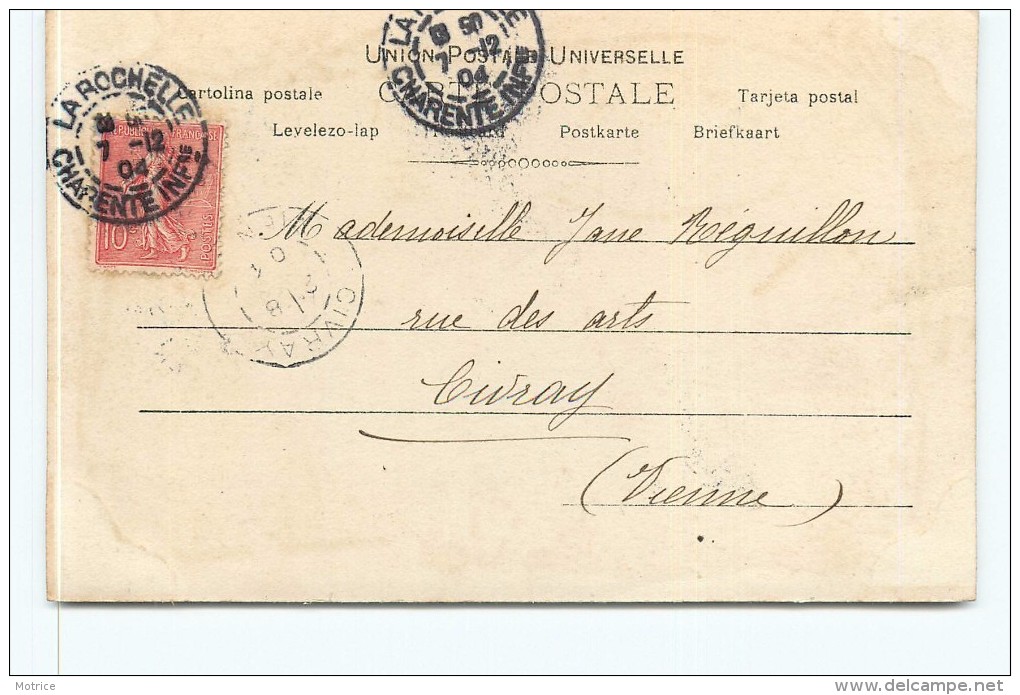 UNION POSTALE UNIVERSELLE
CARTE POSTALE
Cartolina postale
Tarjeta postal
Levelezo-lap
Postkarte
Briefkaart
LA ROCHELLE
7 -12
04
CHARENTE INFRE
7 -12
04
CHARENTE INFRE
REPUBLIQUE FRANÇAISE
10
POSTES
CIVRAY
Mademoiselle Jane Réguillon
rue des arts
Civray
(Vienne)
Motrice
delcampe.net